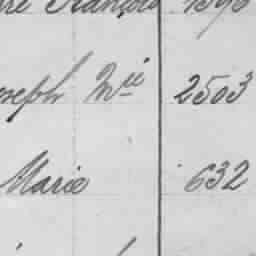 François
Joseph Mie 2503
Marie 632